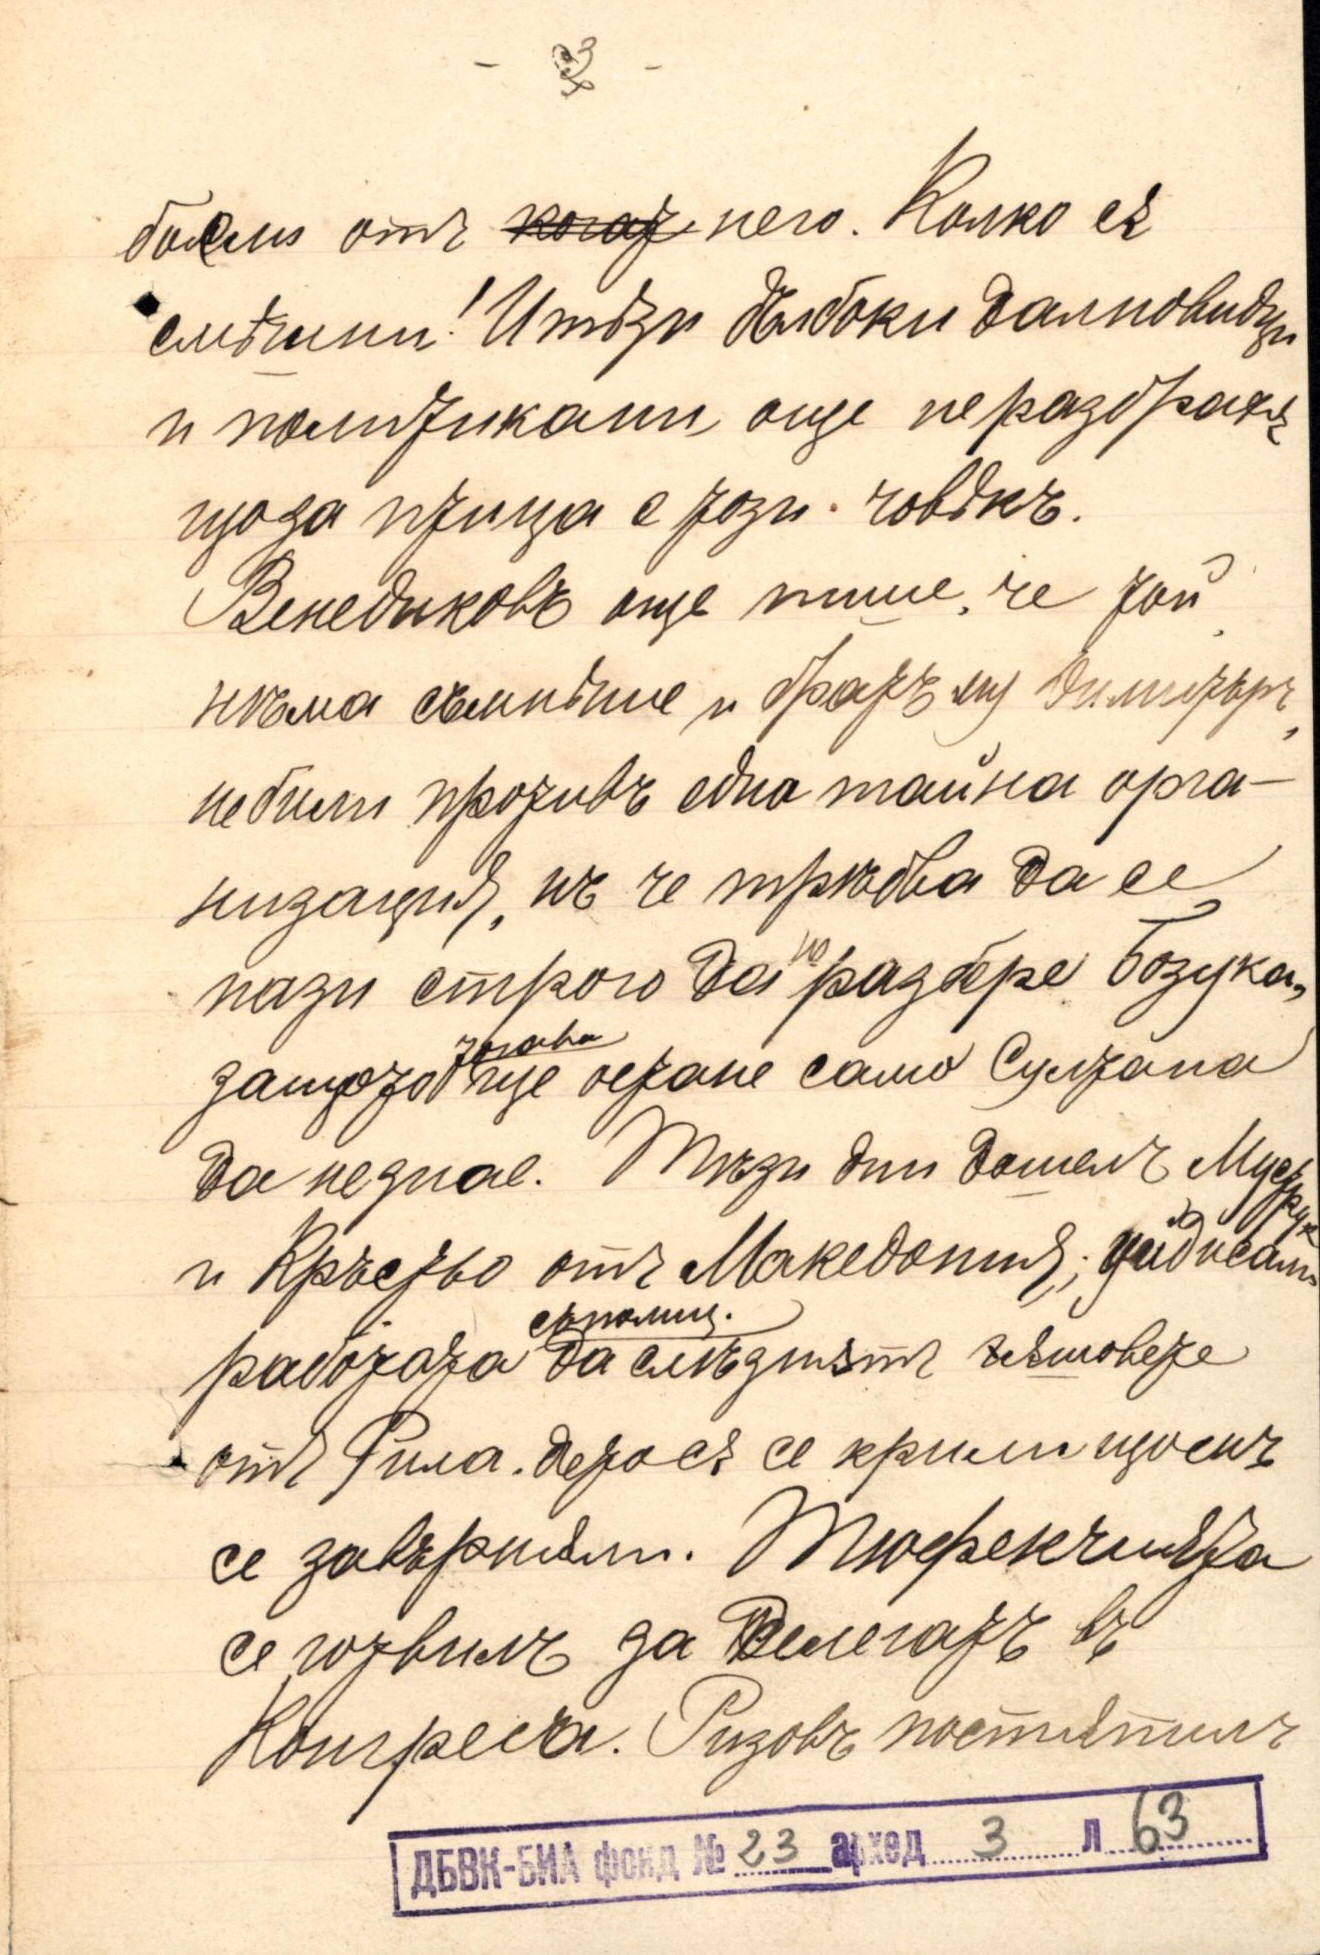 - 3 -
отъ когатъ него. Колко сѫ
смѣшни! И тѣзи дълбоки далновидци
и политикани още не разбрахѫ
що за птица е този човѣкъ.
Венедиковъ още пише, че той,
нѣма съмнѣние и братъ му Димитъръ,
не били противъ една тайна орга-
низация, нъ че трѣбва да се
пази строго да не разбере Бозука,
защото тогава ще остане само Султана
да не знае. Тѣзи дни дошелъ
и Кръстьо отъ Македония;
работата да съполиц. слѣдятъ
отъ Рила. дето сѫ се крили щомъ
се завърнѣли. Тюфекчията
се готвилъ за Делегатъ въ
Конгреса. Ризовъ
ДБВК-БИА фонд № 23 архед 3 л 63